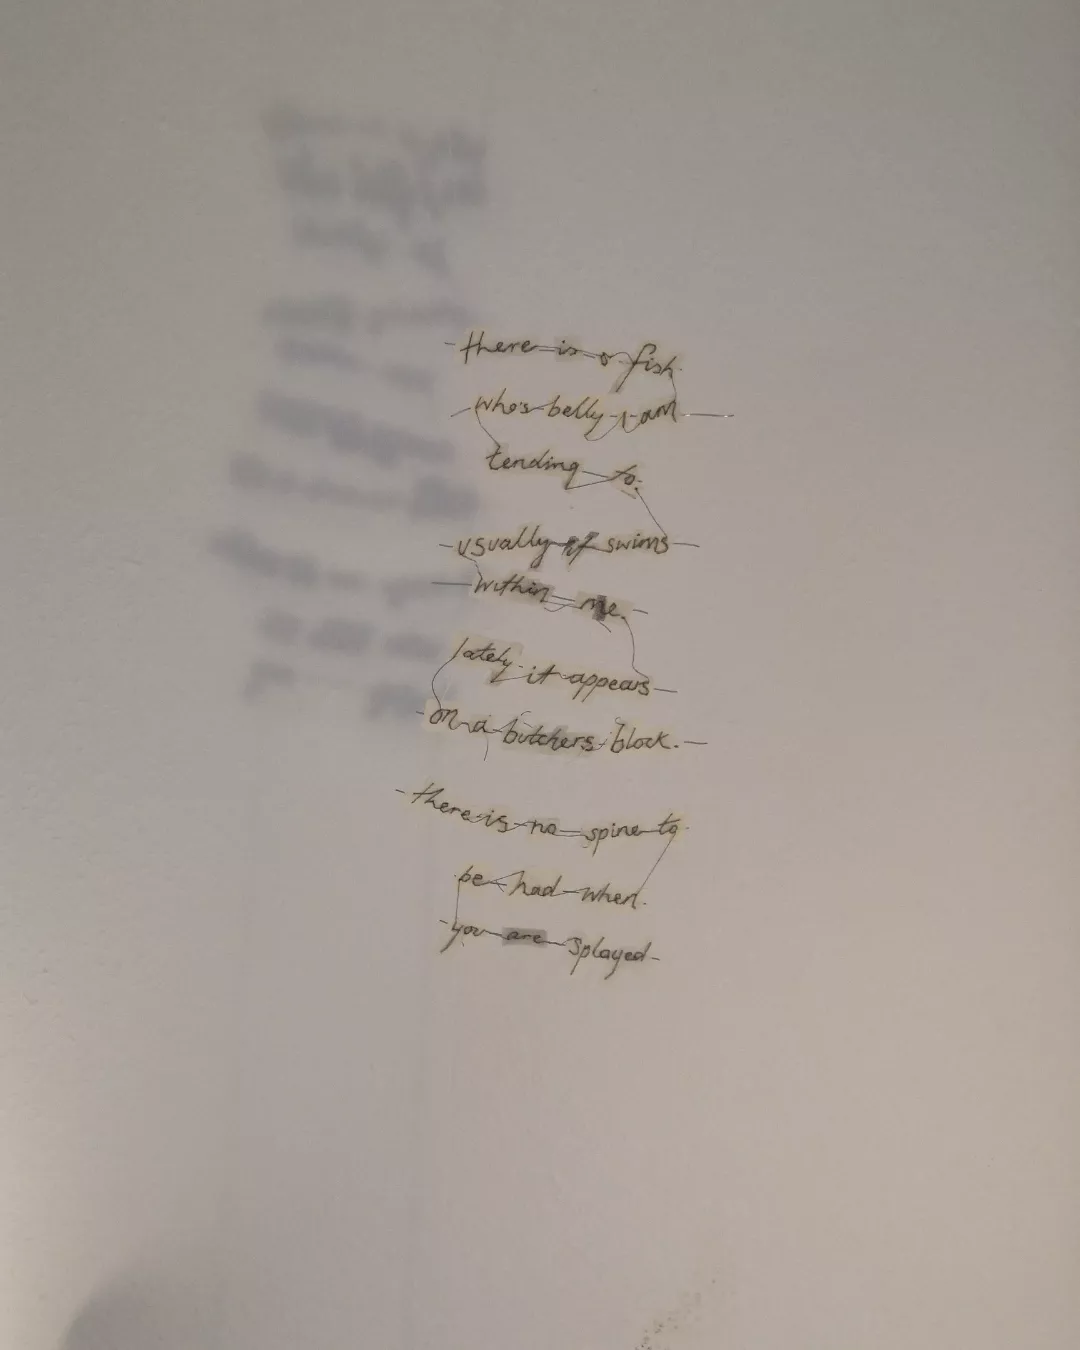 there is a fish
who's belly I am
tending to.
usually it swims
within me.
lately it appears
on a butchers block.
there is no spine to
be had when
you are splayed